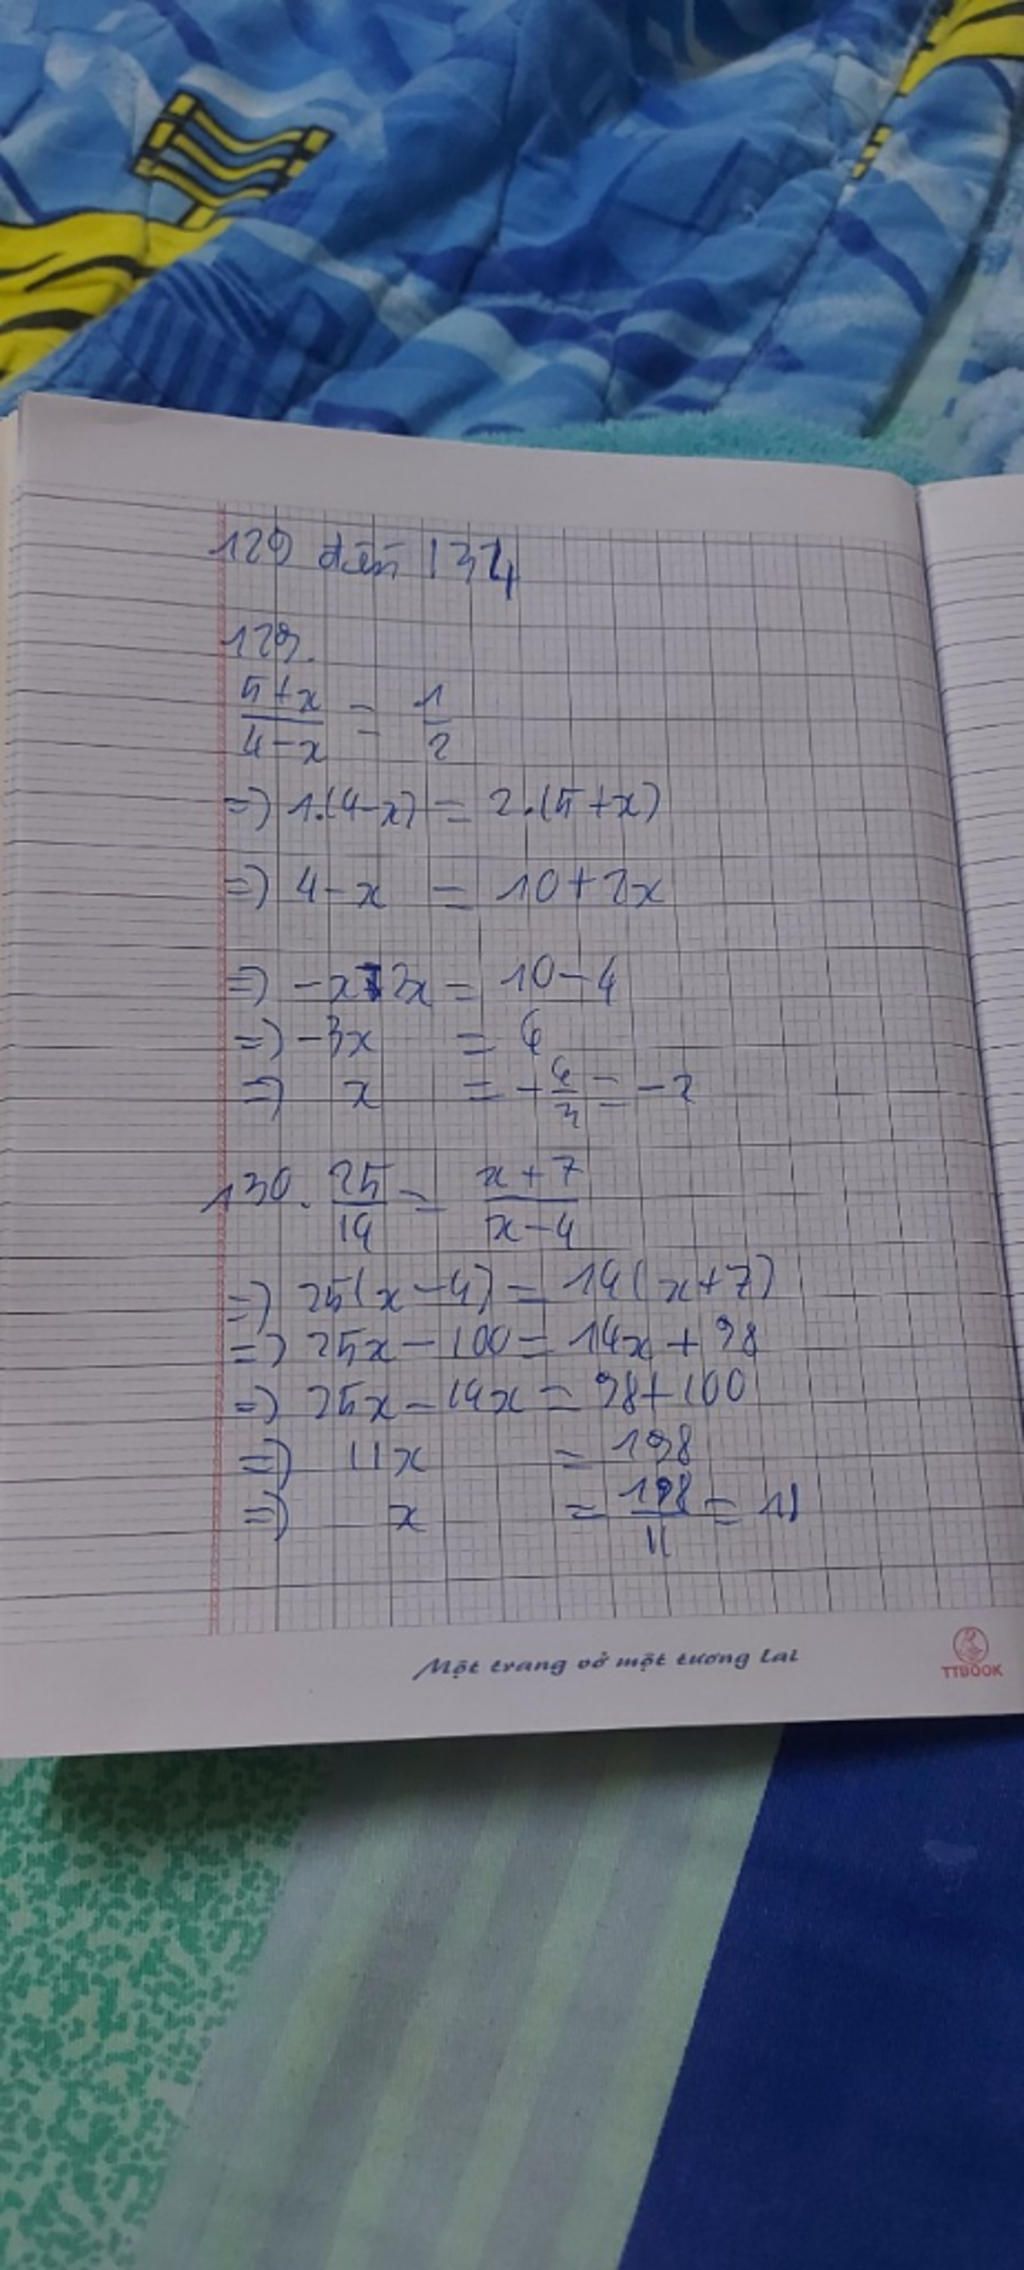 129 đến 134
129.
5+x/4-x = 1/2
=> 1.(4-x) = 2.(5+x)
=> 4-x = 10+2x
=> -x-2x = 10-4
=> -3x = 6
=> x = -6/3 = -2
130. 25/14 = x+7/x-4
=> 25(x-4) = 14(x+7)
=> 25x-100 = 14x+98
=> 25x-14x = 98+100
=> 11x = 198
=> x = 198/11 = 18
Một trang vở một tương lai
TTBOOK